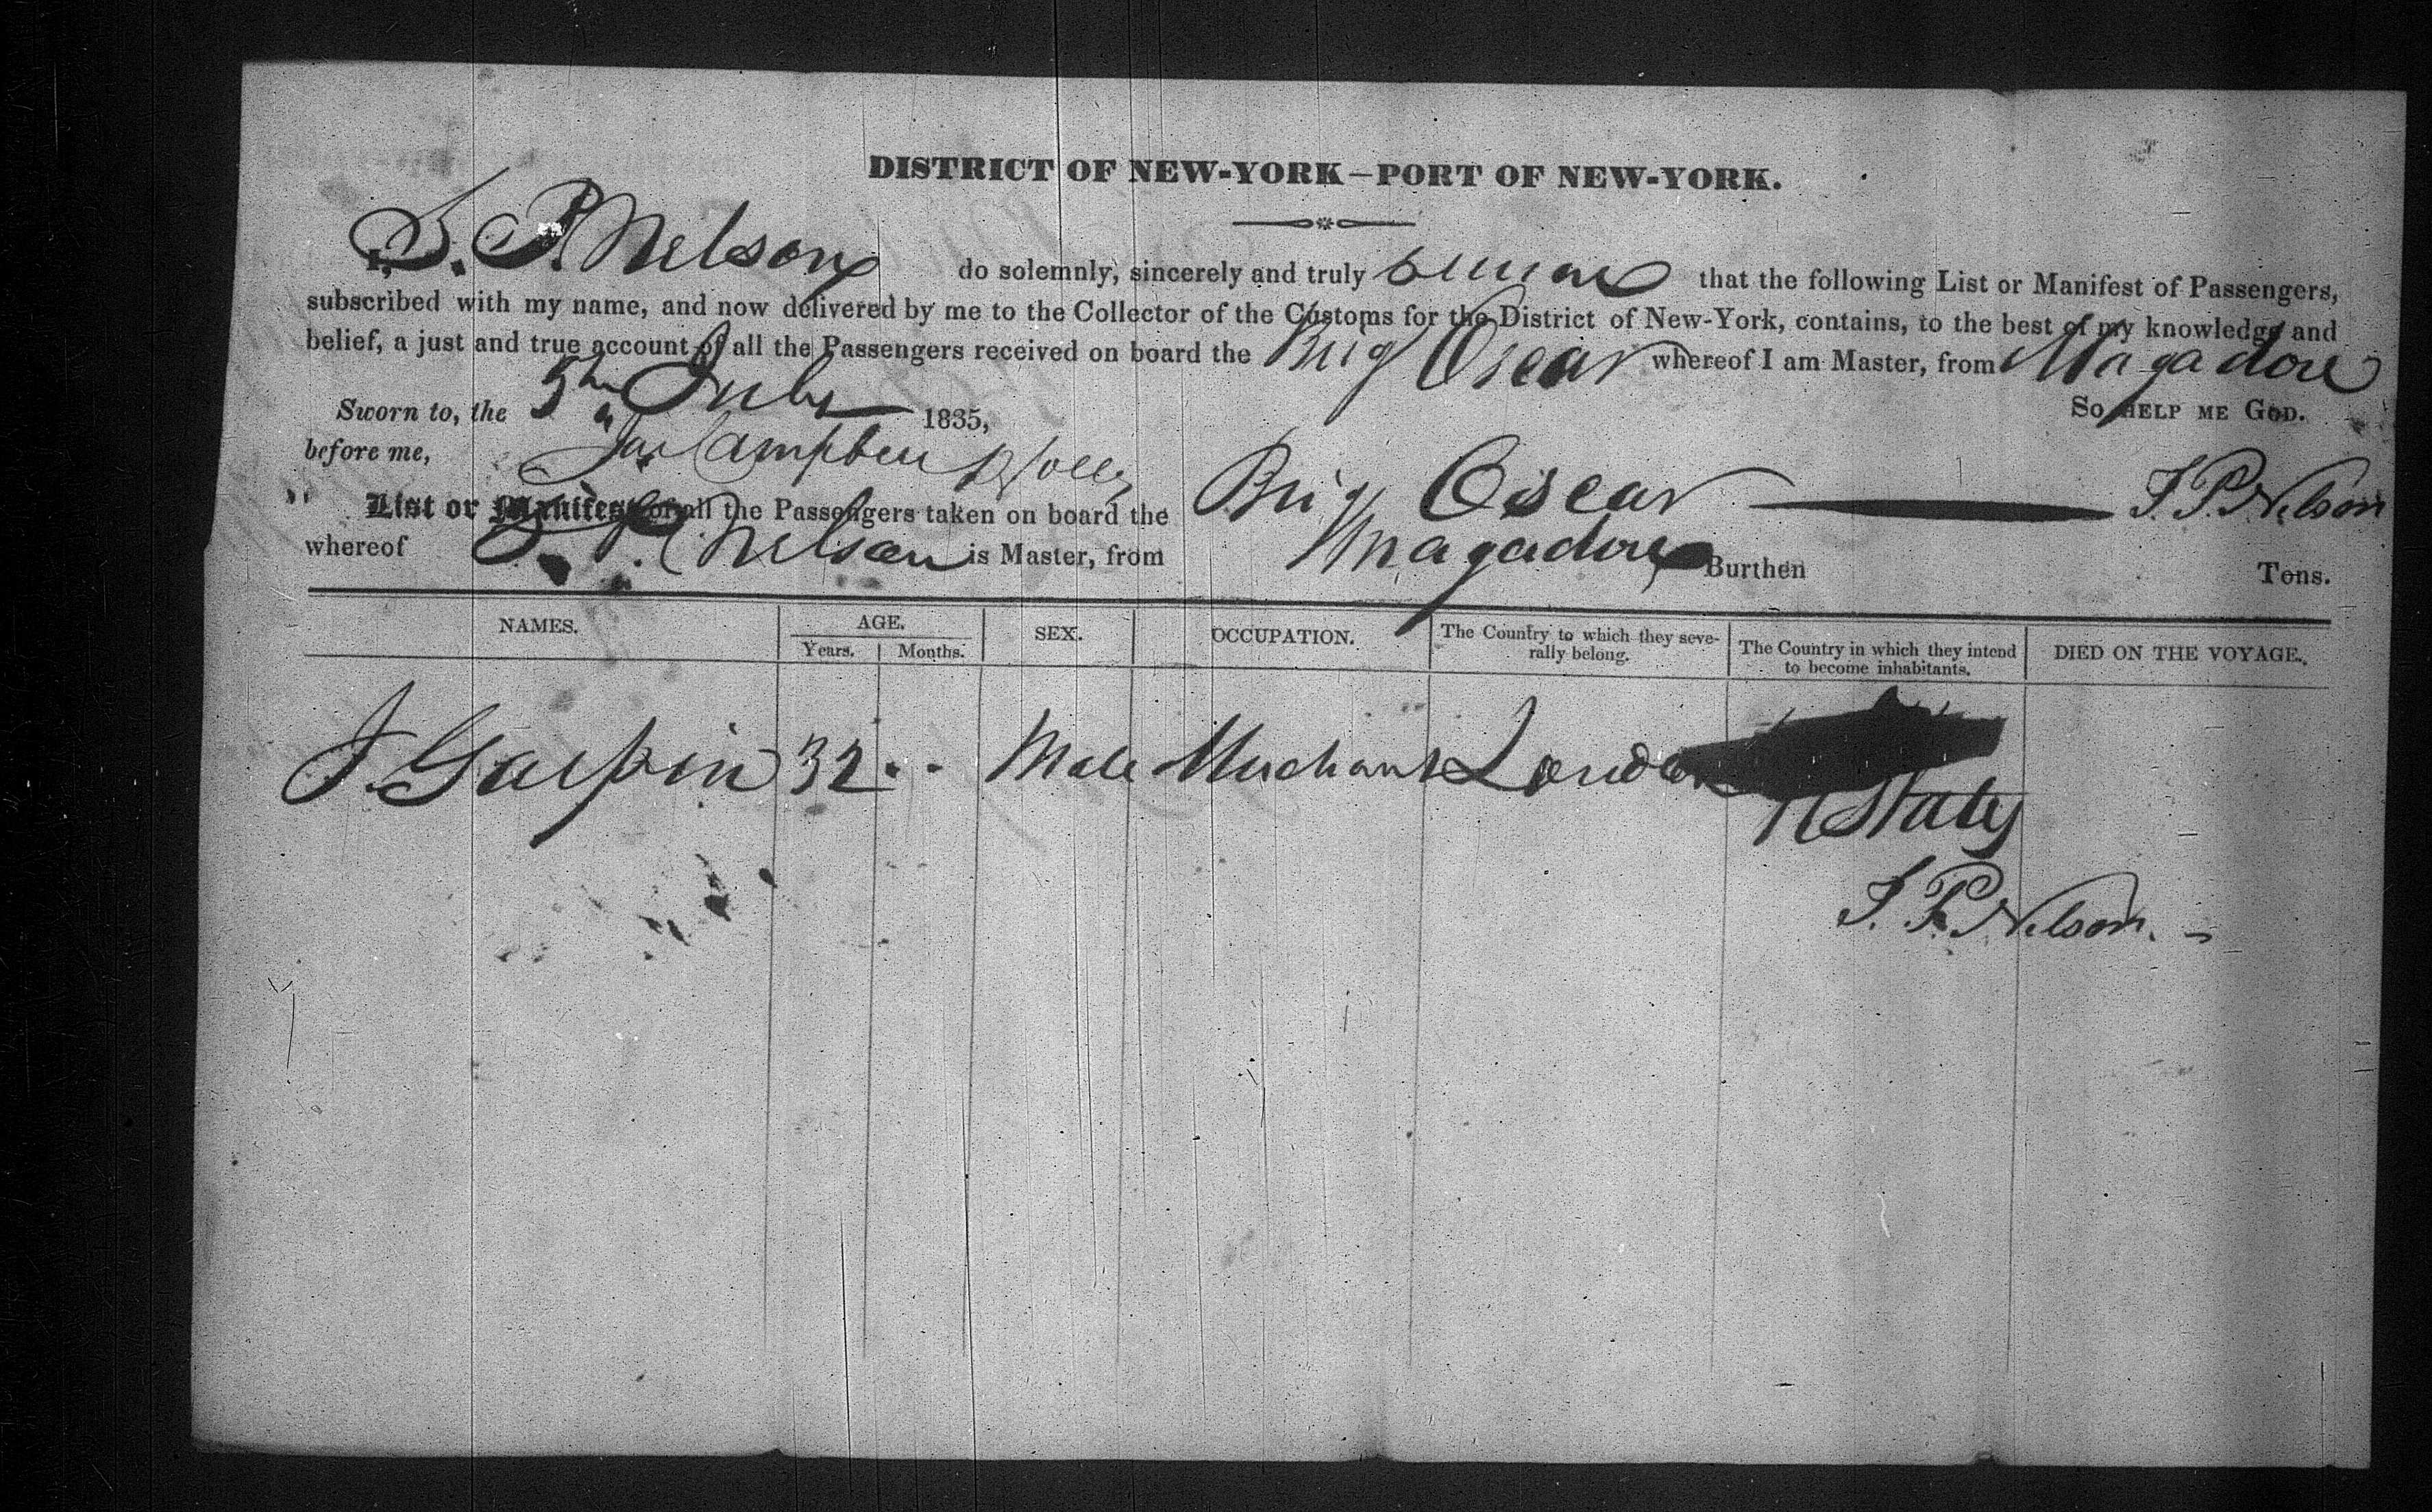 DISTRICT OF NEW-YORK—PORT OF NEW-YORK.
I, S. P. Nelson do solemnly, sincerely and truly swear that the following List or Manifest of Passengers,
subscribed with my name, and now delivered by me to the Collector of the Customs for the District of New-York, contains, to the best of my knowledge and
belief, a just and true account of all the Passengers received on board the Brig Oscar whereof I am Master, from Magadore
Sworn to, the 5th July 1835, So HELP ME GOD.
before me, Jas Campbell
List or Manifest of all the Passengers taken on board the Brig Oscar S. P. Nelson
whereof S. P. Nelson is Master, from Magadore Burthen Tons.
NAMES. AGE. Years. Months. SEX. OCCUPATION. The Country to which they severally belong. The Country in which they intend to become inhabitants. DIED ON THE VOYAGE.
J. 32 Male Merchant London
States
S. P. Nelson.